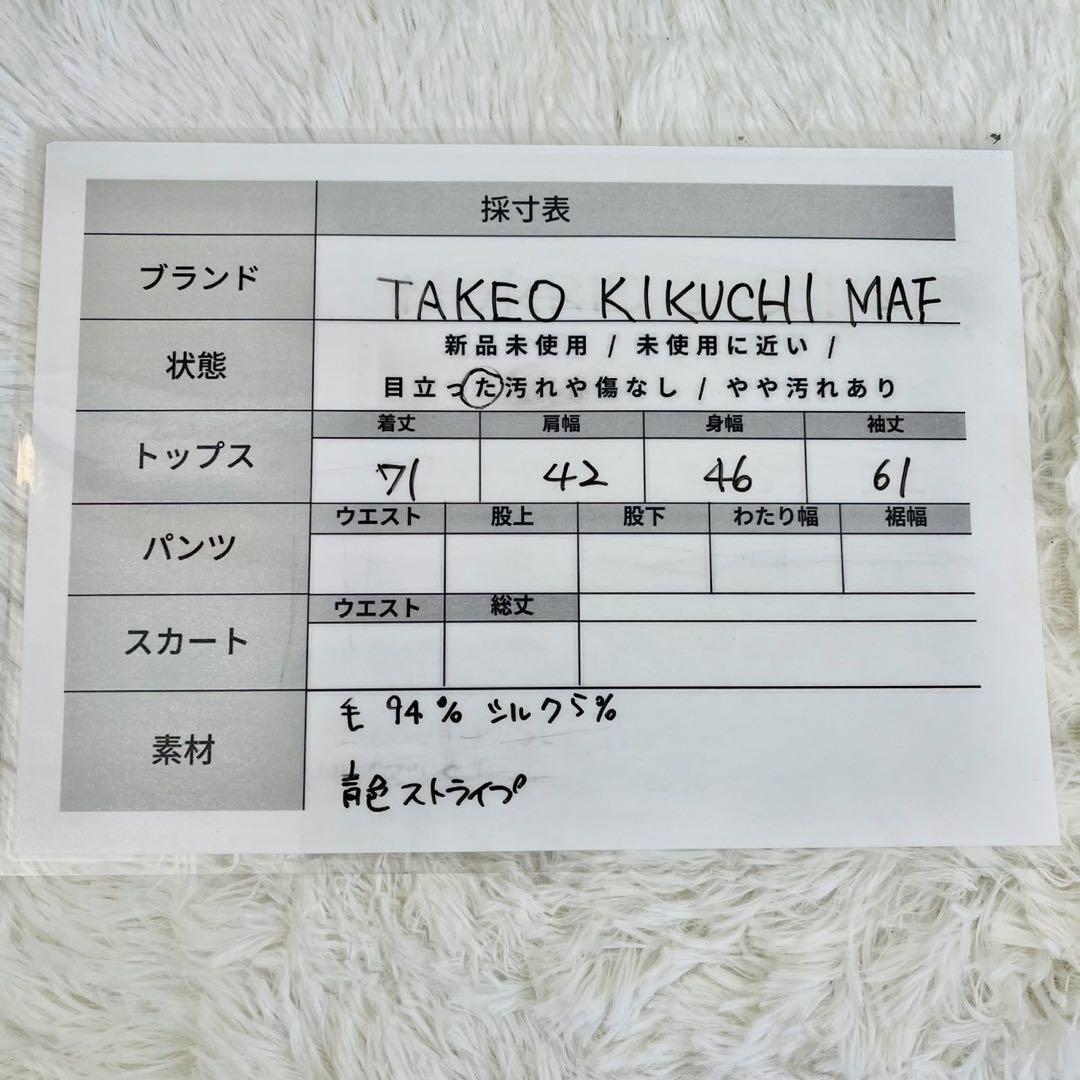 採寸表
ブランド
TAKEO KIKUCHI MAF
状態
新品未使用 / 未使用に近い /
目立った汚れや傷なし / やや汚れあり
トップス
着丈 肩幅 身幅 袖丈
71 42 46 61
パンツ
ウエスト 股上 股下 わたり幅 裾幅
スカート
ウエスト 総丈
素材
毛 94% シルク5%
青色ストライプ